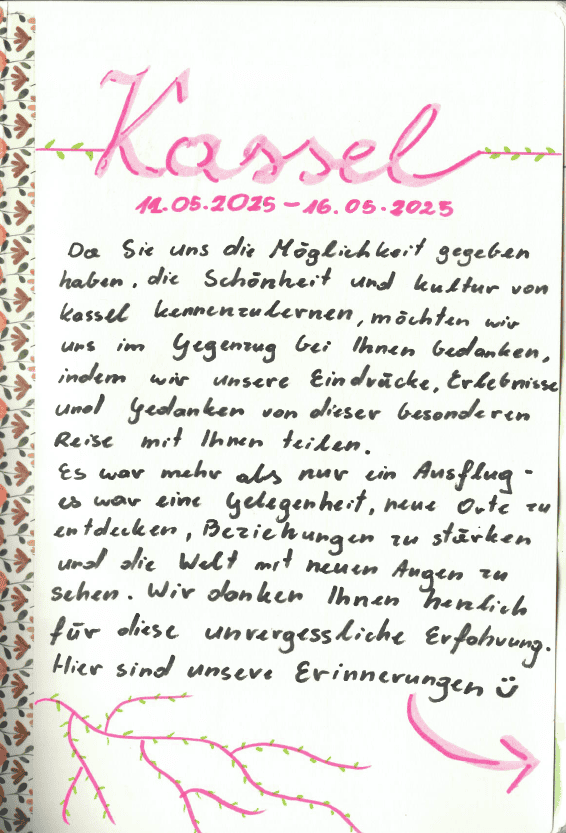 Kassel
11.05.2025 - 16.05.2025
Da Sie uns die Möglichkeit gegeben
haben, die Schönheit und kultur von
kassel kennenzulernen, möchten wir
uns im Gegenzug bei Ihnen bedanken,
indem wir unsere Eindrücke, Erlebnisse
und Gedanken von dieser besonderen
Reise mit Ihnen teilen.
Es war mehr als nur ein Ausflug -
es war eine Gelegenheit, neue Orte zu
entdecken, Beziehungen zu stärken
und die Welt mit neuen Augen zu
sehen. Wir danken Ihnen herzlich
für diese unvergessliche Erfahrung.
Hier sind unsere Erinnerungen ü